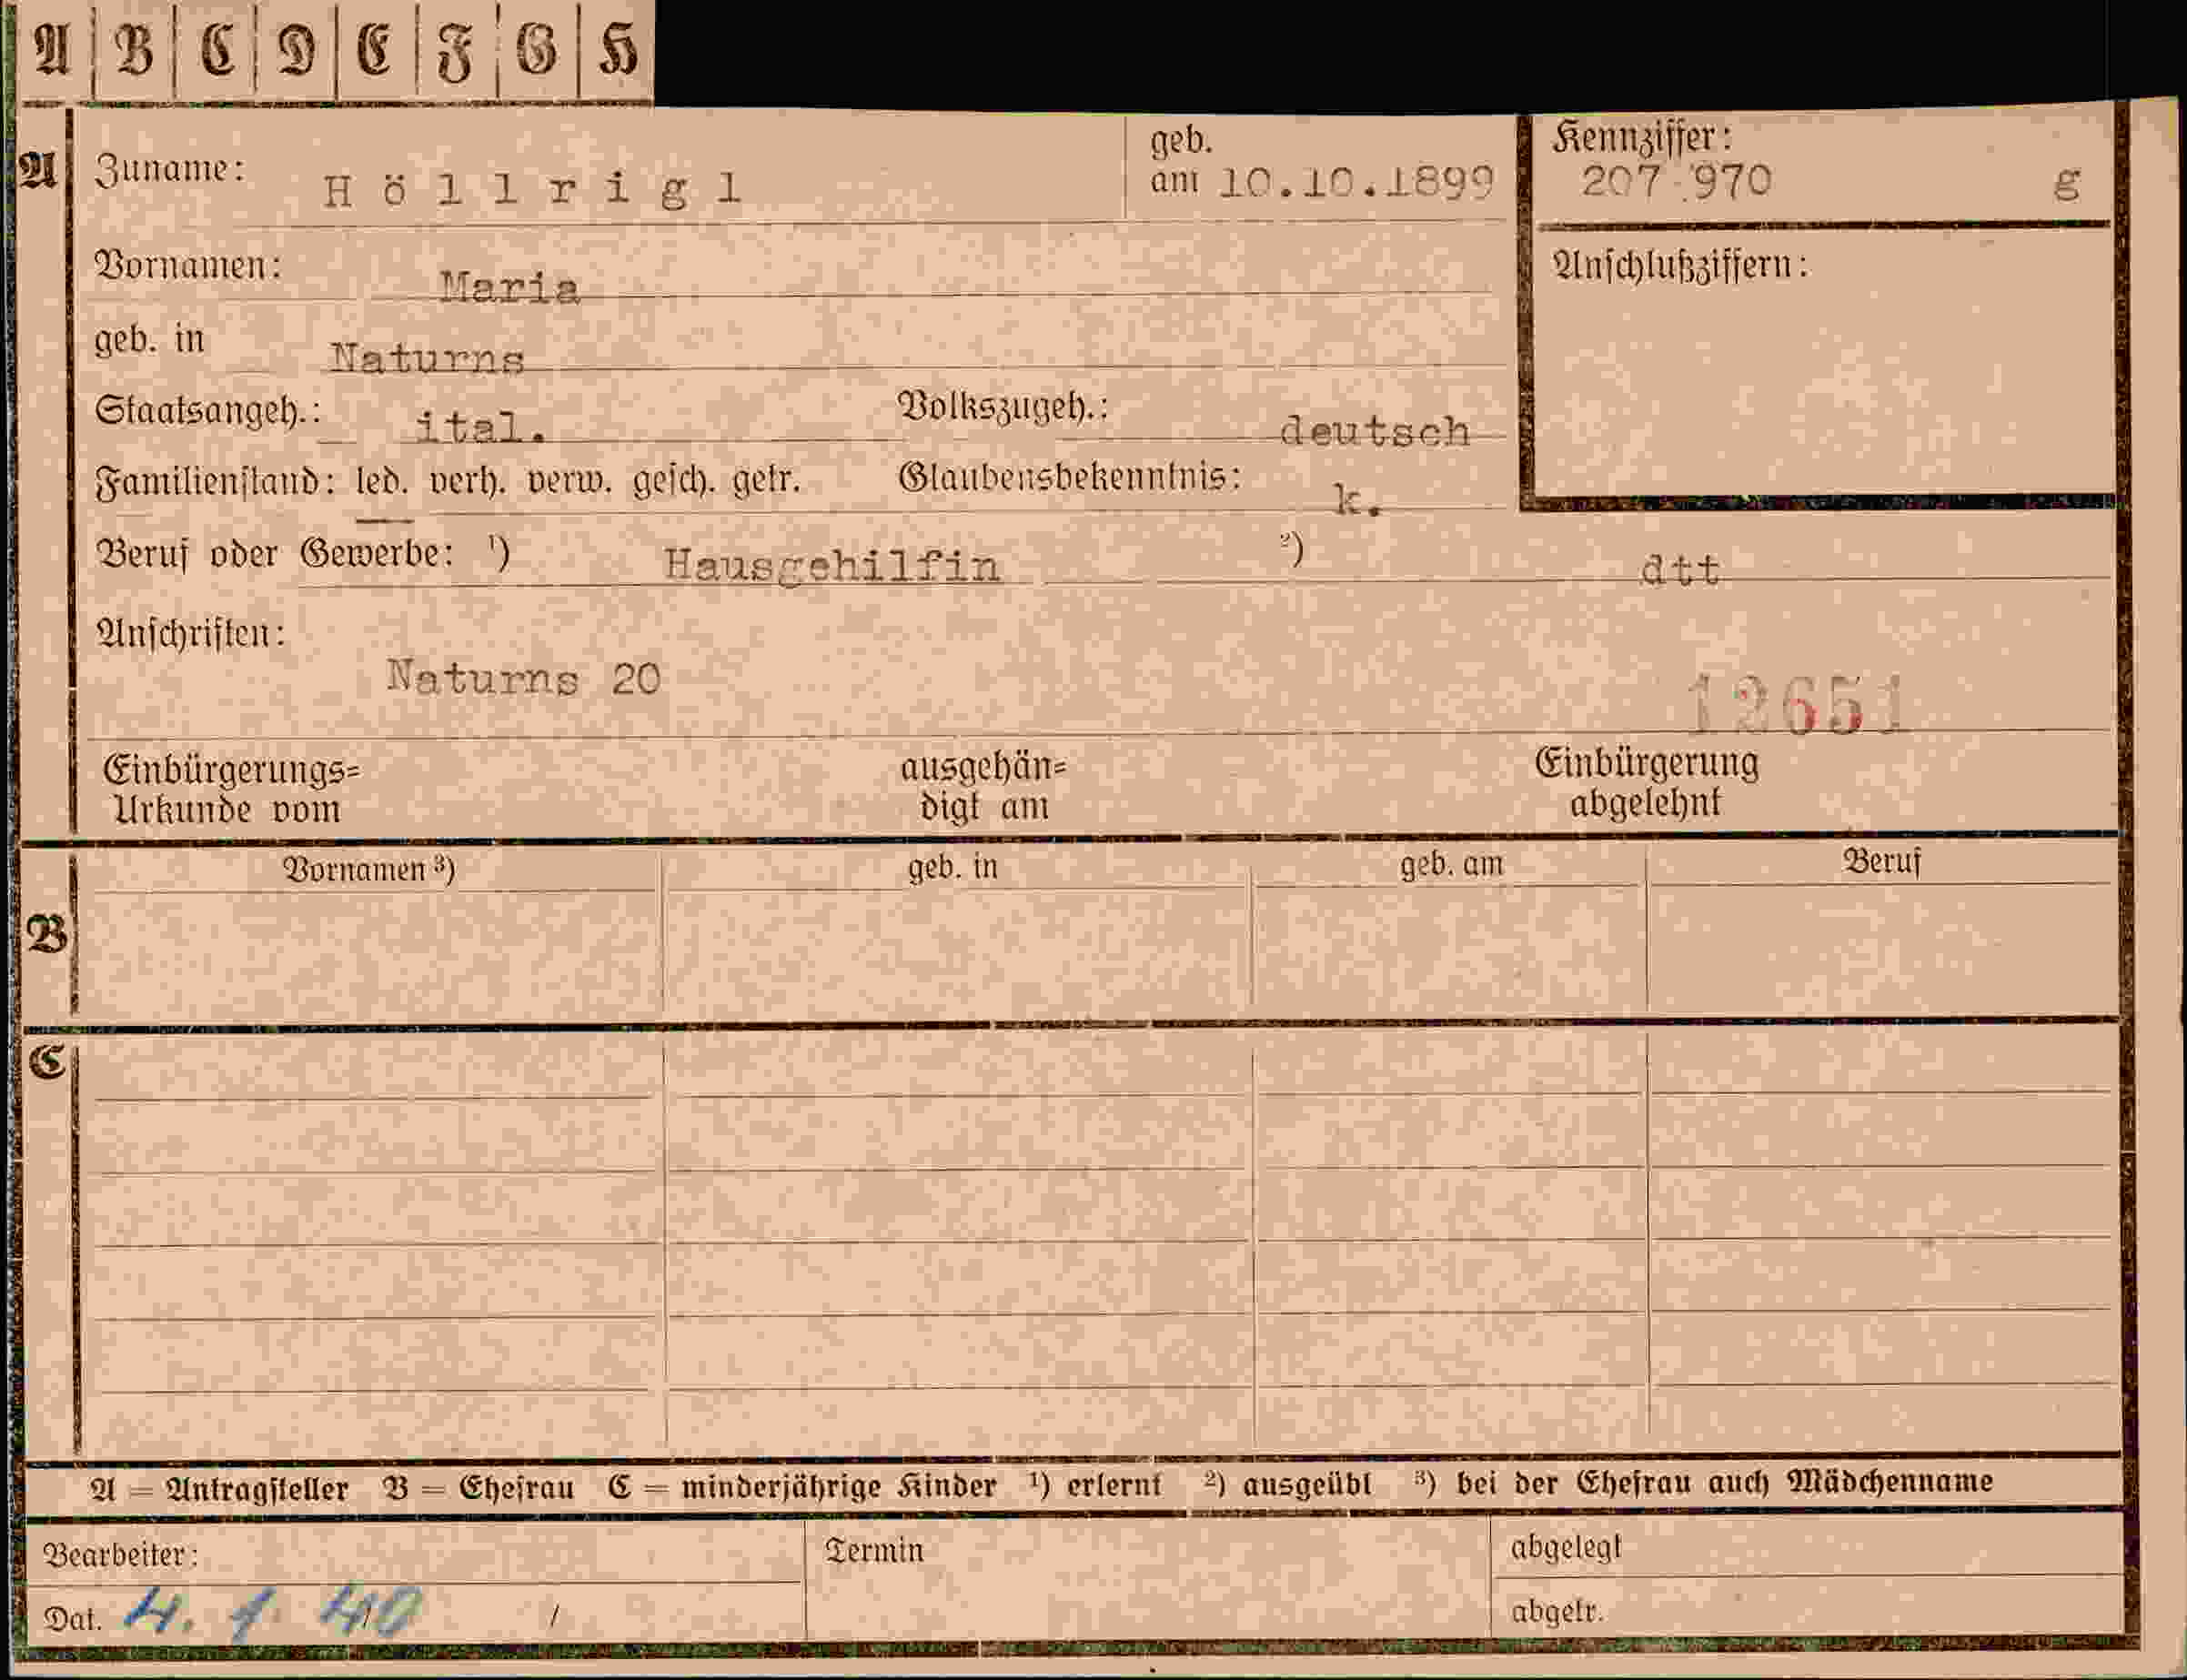 A B C D E F G H
A Zuname: Höllrigl geb. am 10.10.1899 Kennziffer: 207 970 g
Vornamen: Maria Anschlußziffern:
geb. in Naturns
Staatsangeh.: ital. Volkszugeh.: deutsch
Familienstand: led. verh. verw. gesch. getr. Glaubensbekenntnis: k.
Beruf oder Gewerbe: ¹) Hausgehilfin ²) dtt
Anschriften:
Naturns 20
12651
Einbürgerungs= ausgehän= Einbürgerung
Urkunde vom digt am abgelehnt
Vornamen ³) geb. in geb. am Beruf
B
C
A = Antragsteller B = Ehefrau C = minderjährige Kinder ¹) erlernt ²) ausgeübt ³) bei der Ehefrau auch Mädchenname
Bearbeiter: Termin abgelegt
Dat. 4. 1. 40 / abgetr.